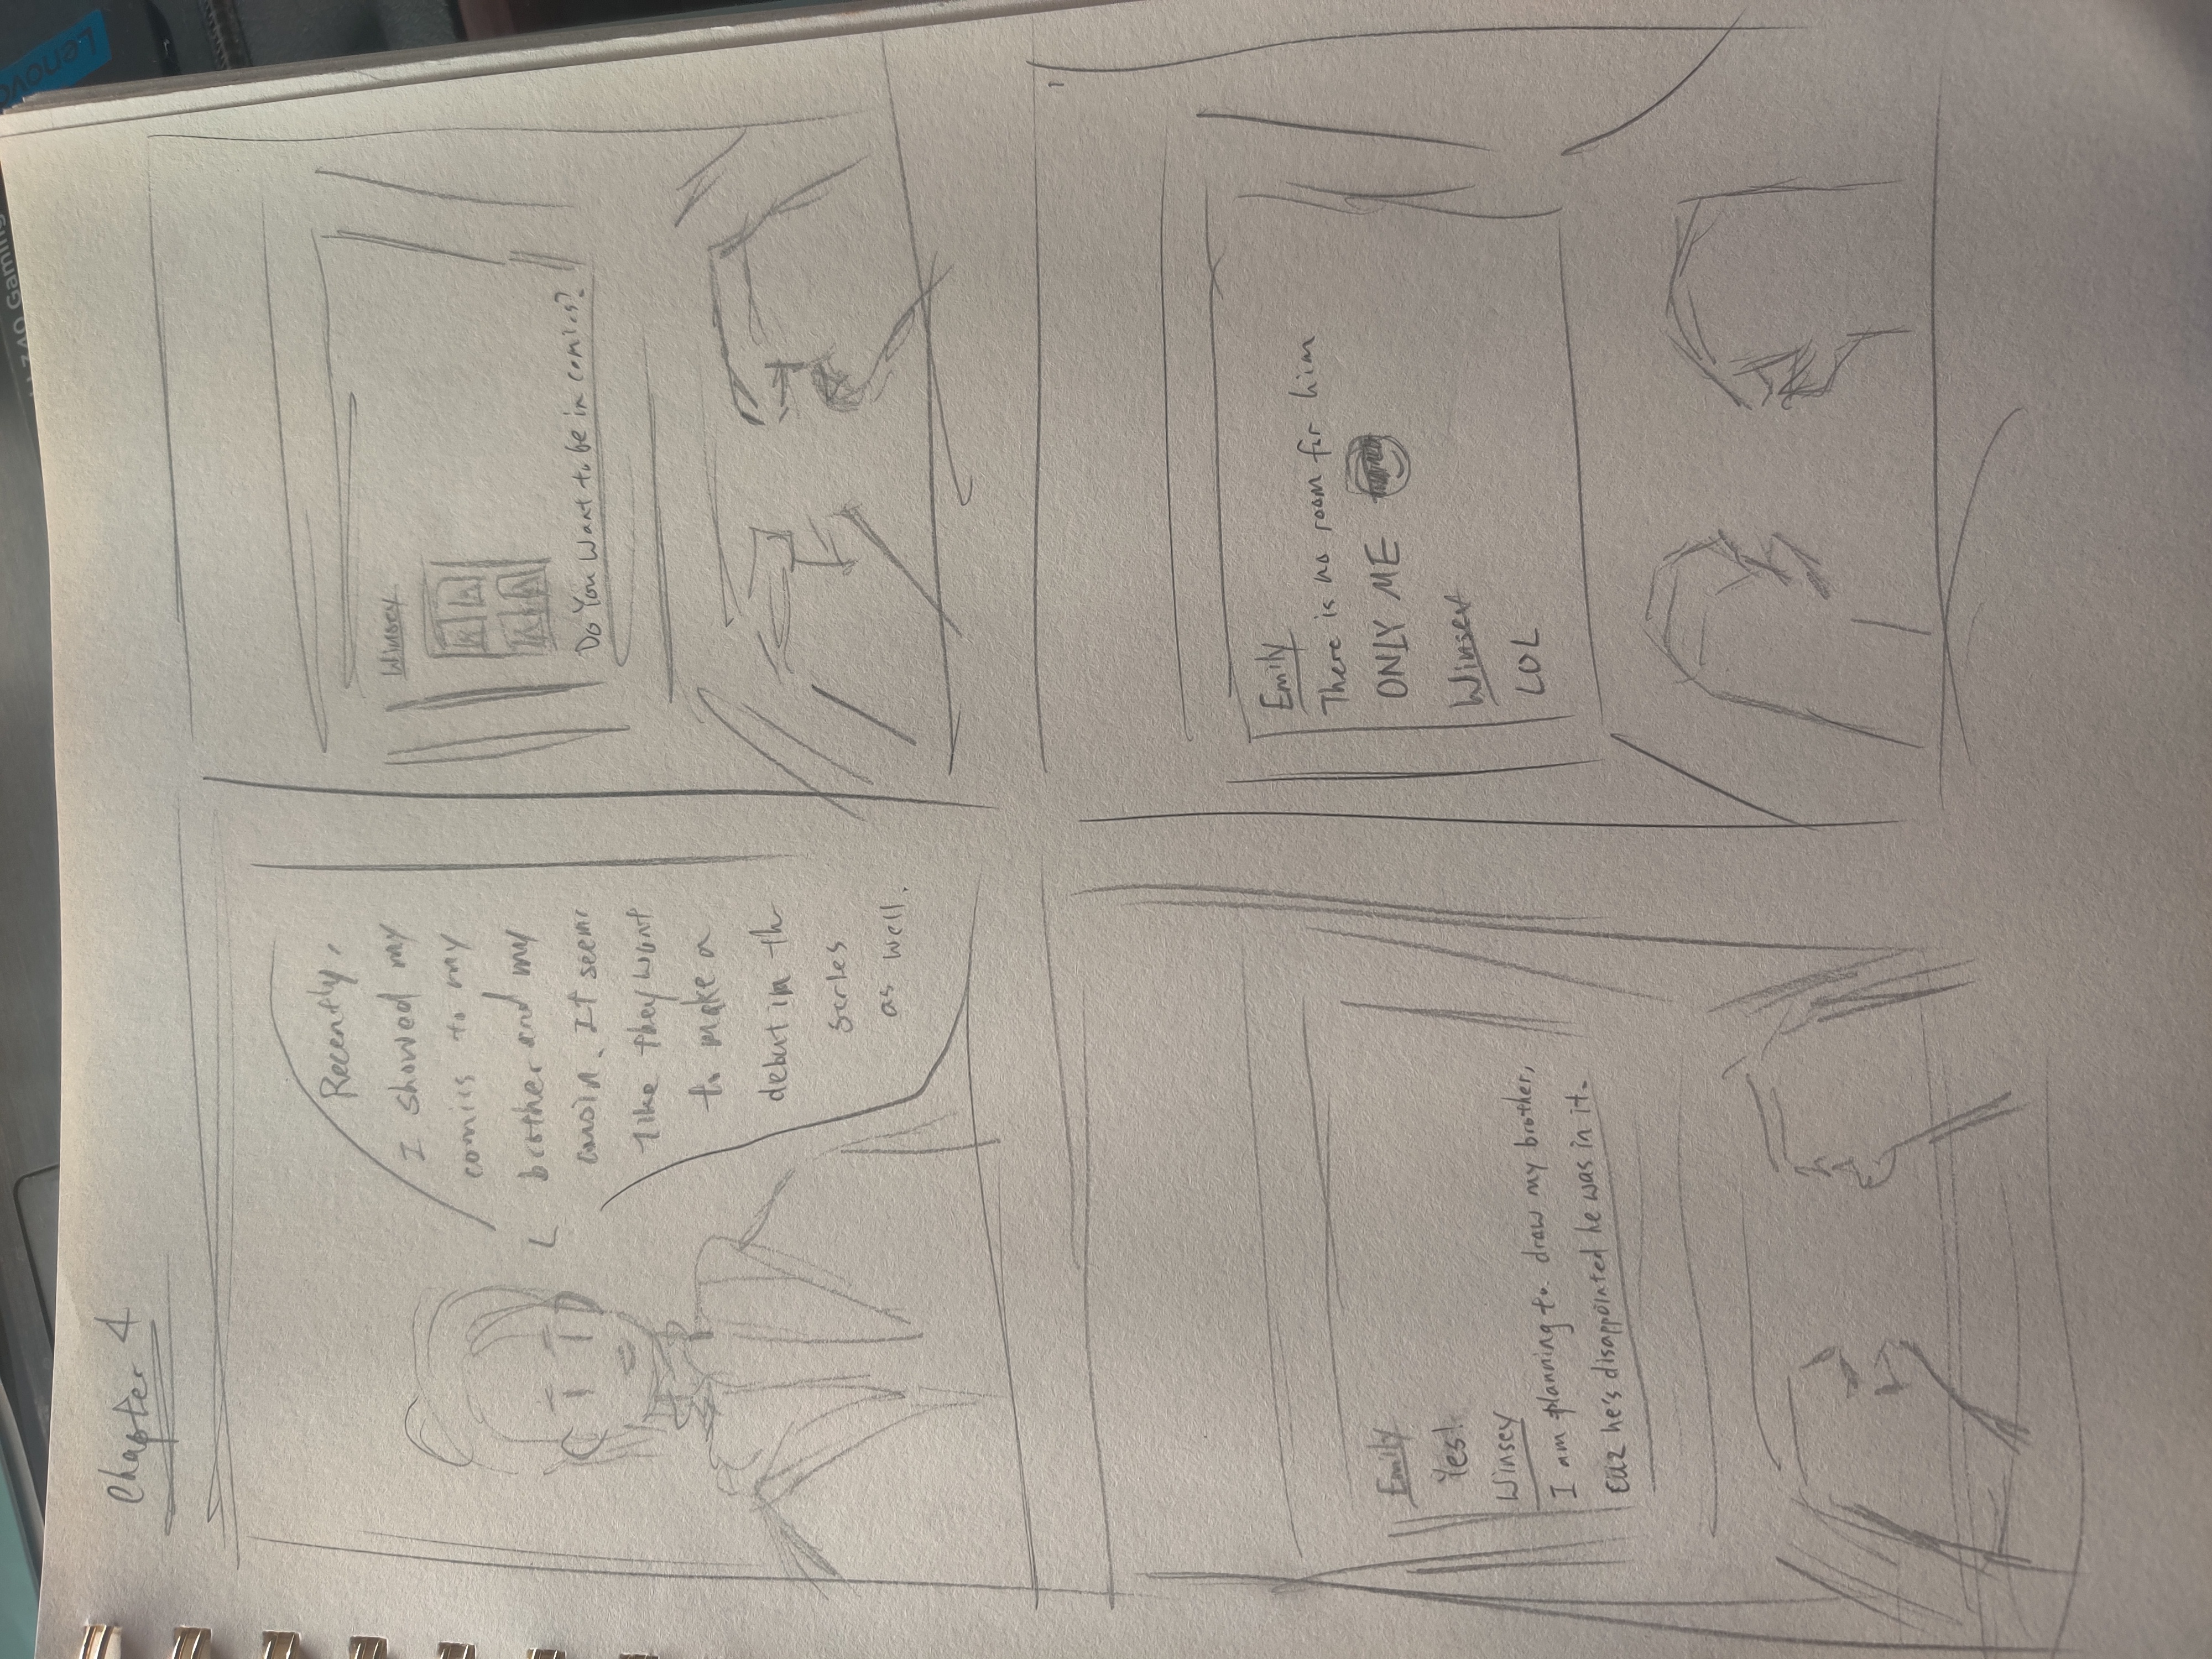 Chapter 4
Recently,
I showed my
comics to my
brother and my
cousin. It seems
like they want
to make a
debut in the
series
as well.
Winsey
Do You Want to be in comics?
Emily
Yes!
Winsey
I am planning to draw my brother,
cuz he's disappointed he was in it.
Emily
There is no room for him
ONLY ME
Winsey
LOL
L340 Gaming
Lenovo